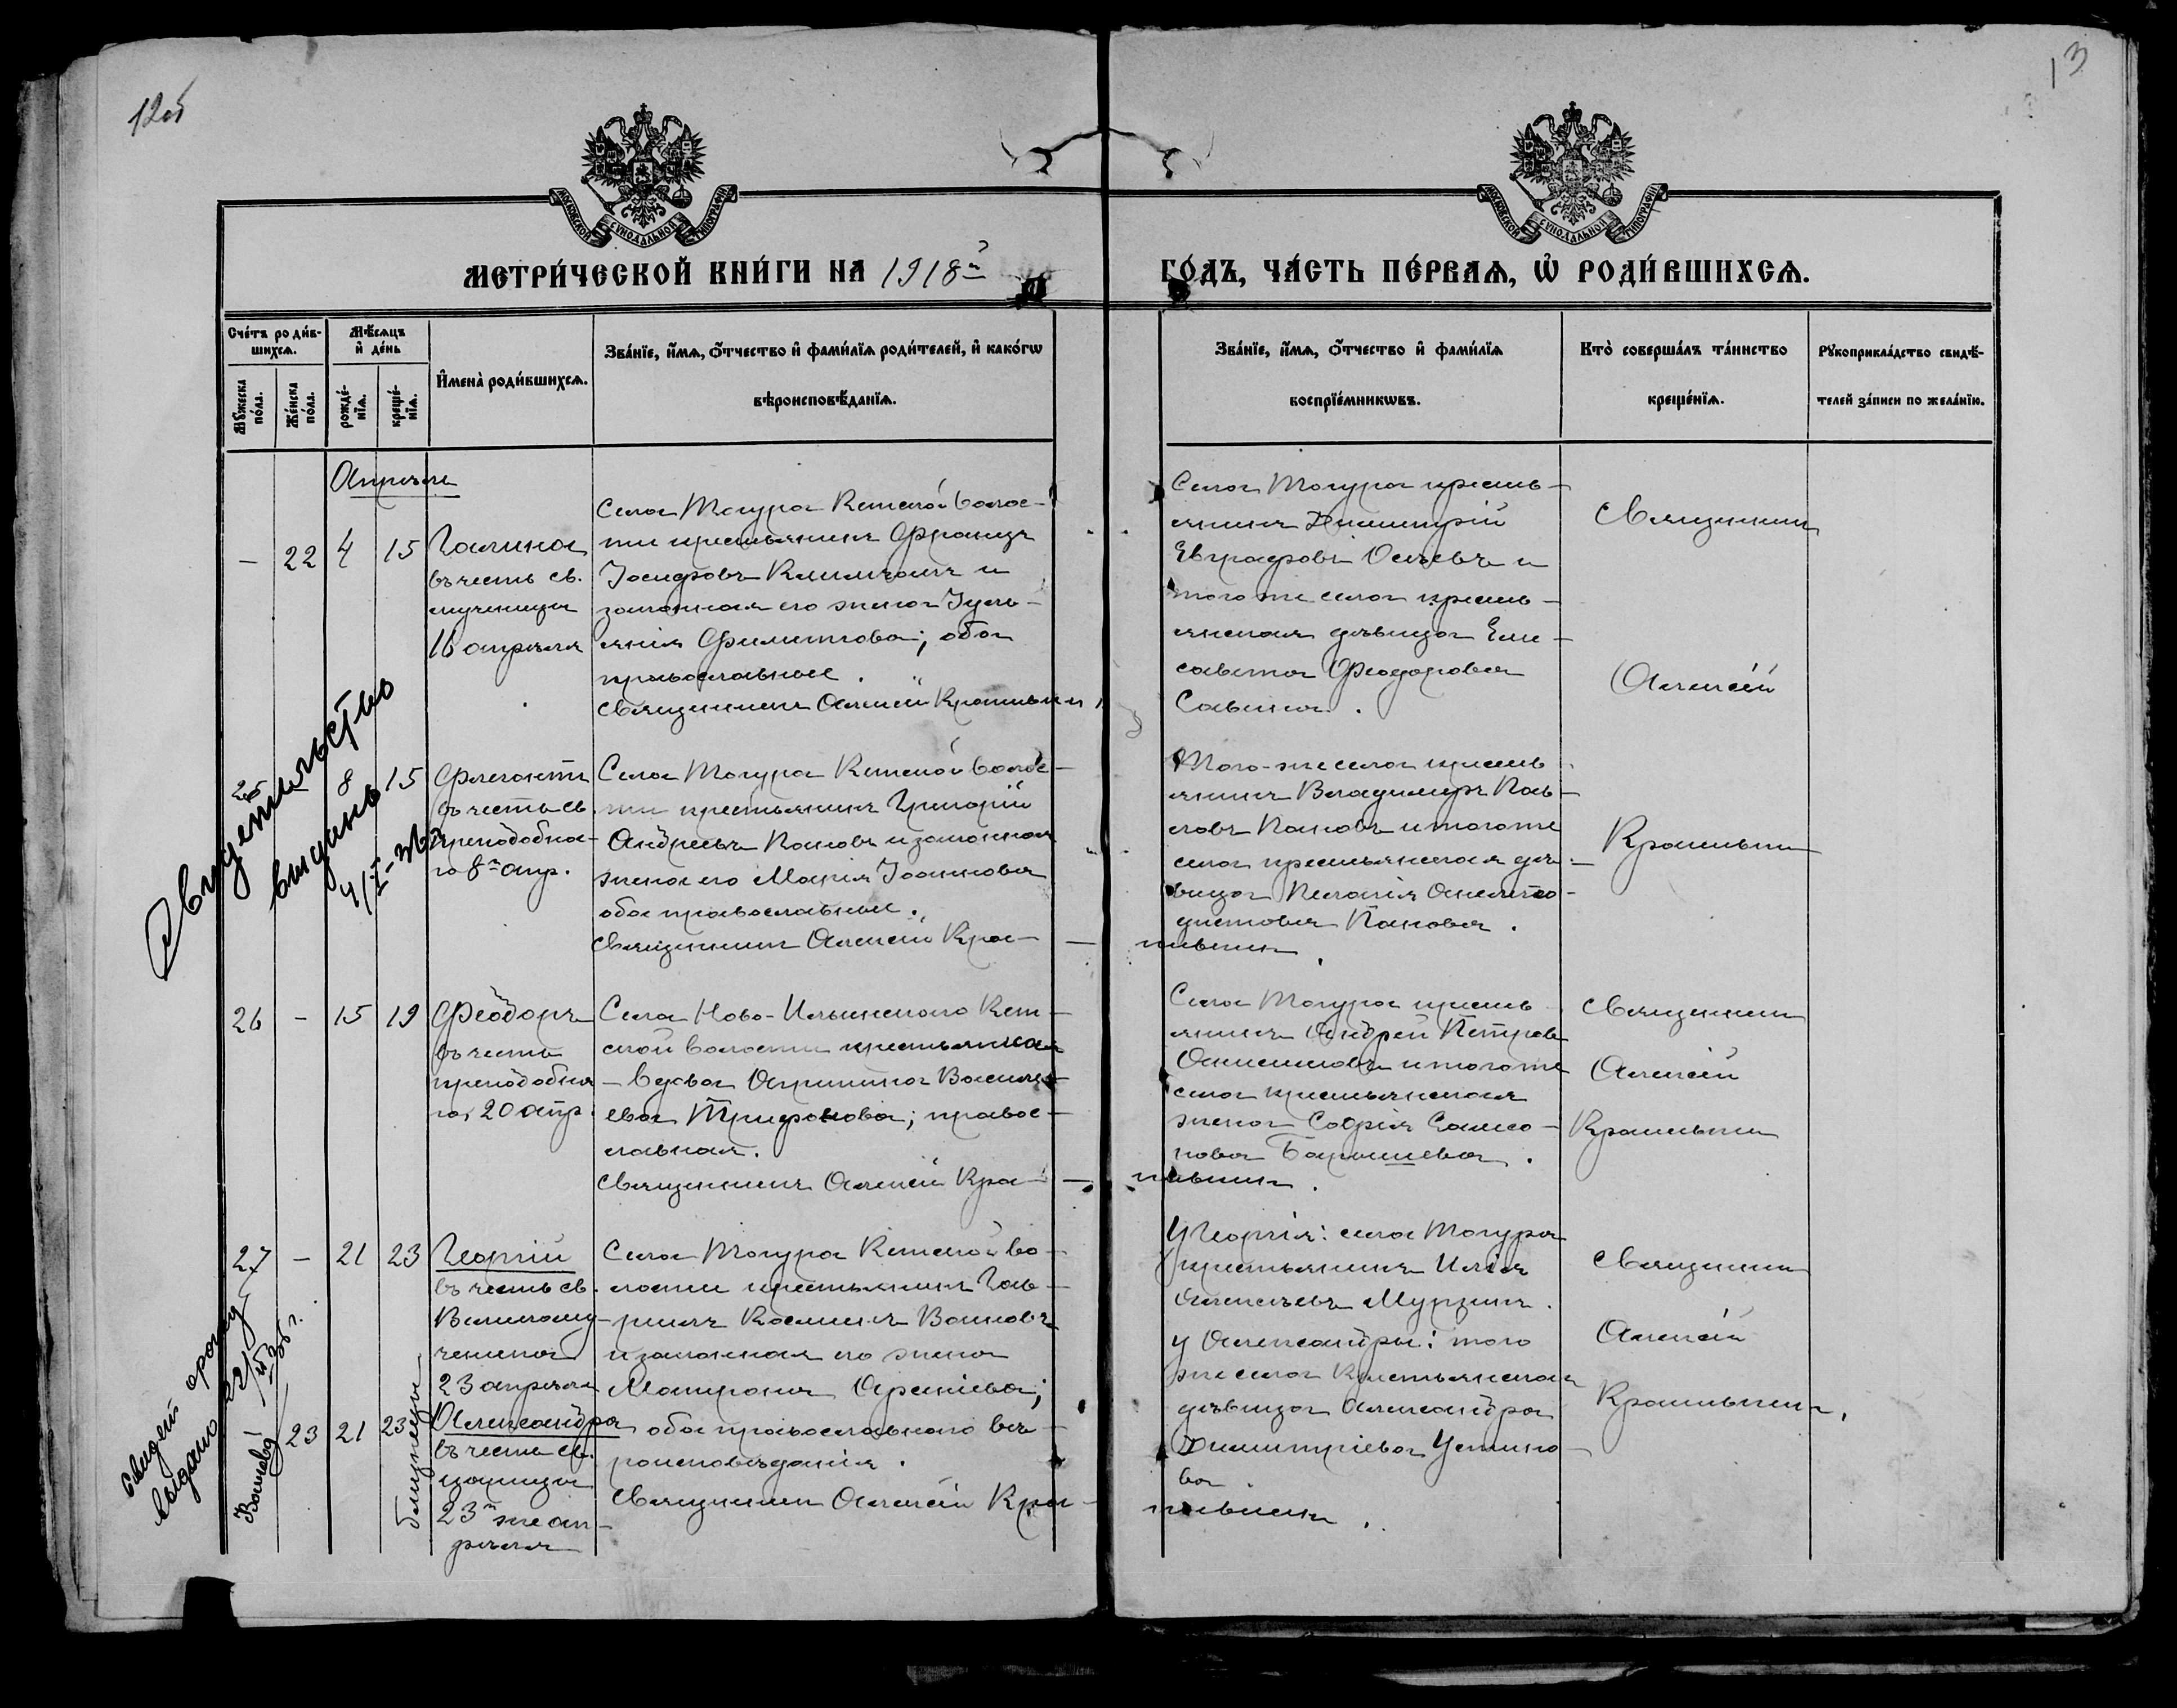 12об
13
МОСКОВСКОЙ СѴНОДАЛЬНОЙ ТИПОГРАФІИ
МОСКОВСКОЙ СѴНОДАЛЬНОЙ ТИПОГРАФІИ
МЕТРИ́ЧЕСКОЙ КНИ́ГИ НА 1918й
ГО́ДЪ, ЧА́СТЬ ПЕ́РВАѦ, Ѡ҆ РОДИ́ВШИХСѦ.
Сче́тъ роди́в-
шихсѧ.
Мѣ́сѧцъ
и҆ де́нь
Мꙋ́жеска
по́ла.
Же́нска
по́ла.
рожде́-
нїѧ.
креще́-
нїѧ.
И҆мена̀ роди́вшихсѧ.
Зва́нїе, и҆́мѧ, ѻ҆́тчество и҆ фами́лїѧ роди́телей, и҆ како́гѡ
вѣроисповѣ́данїѧ.
Зва́нїе, и҆́мѧ, ѻ҆́тчество и҆ фами́лїѧ
воспрїе́мникѡвъ.
Кто̀ соверша́лъ та́инство
креще́нїѧ.
Рꙋкоприкла́дство свидѣ́-
телей за́писи по жела́нїю.
Апрель
— 22 4 15
Галина
въ честь св.
мученицы
16 апреля
Села Тогура Кетской волос-
ти крестьянинъ Францъ
Іосифовъ Климчакъ и
законная его жена Іуль-
янія Филиппова; оба
православные.
Священникъ Алексій Крапивинъ
Села Тогура кресть-
янинъ Димитрій
Евграфовъ Осѣевъ и
того же села кресть-
янская дѣвица Ели-
савета Феодорова
Савина.
Священникъ
Алексій
Крапивинъ
Свидетельство
выдано
25 — 8 15
Флегонтъ
въ честь св.
преподобна-
го 8го апр.
Села Тогура Кетской волос-
ти крестьянинъ Григорій
Андреевъ Пановъ и законная
жена его Марія Іоаннова
оба православные.
Священникъ Алексій Кра-
пивинъ.
Того-же села кресть-
янинъ Владимиръ Пав-
ловъ Пановъ и того же
села крестьянская дѣ-
вица Пелагія
Панова.
26 — 15 19
Феодоръ
въ честь
преподобна-
го, 20 апр.
Села Ново-Ильинскаго Кет-
ской волости крестьянская
— вдова Агрипина Василь-
ева Трифонова; правос-
лавная.
Священникъ Алексій Кра-
пивинъ.
Села Тогура кресть-
янинъ Андрей Петровъ
Анисимовъ и того же
села крестьянская
жена Софія Самсо-
нова Барышева.
Священникъ
Алексій
Крапивинъ
27 — 21 23
Георгій
въ честь св.
Великому-
ченика
23 апреля
Села Тогура Кетской во-
лости крестьянинъ Гав-
риилъ Космичъ Воиновъ
и законная его жена
Матрона Арсеніева;
оба православнаго вѣ-
роисповѣданія.
Священникъ Алексій Кра-
пивинъ.
У Георгія: села Тогура
крестьянинъ Илія
Алексѣевъ Мурзинъ.
У Александры: того
же села крестьянская
дѣвица Александра
Димитріева Устино-
ва
Священникъ
Алексій
Крапивинъ.
23 21 23
близнецы
Александра
въ честь св.
царицы
23го же ап-
реля
выдано